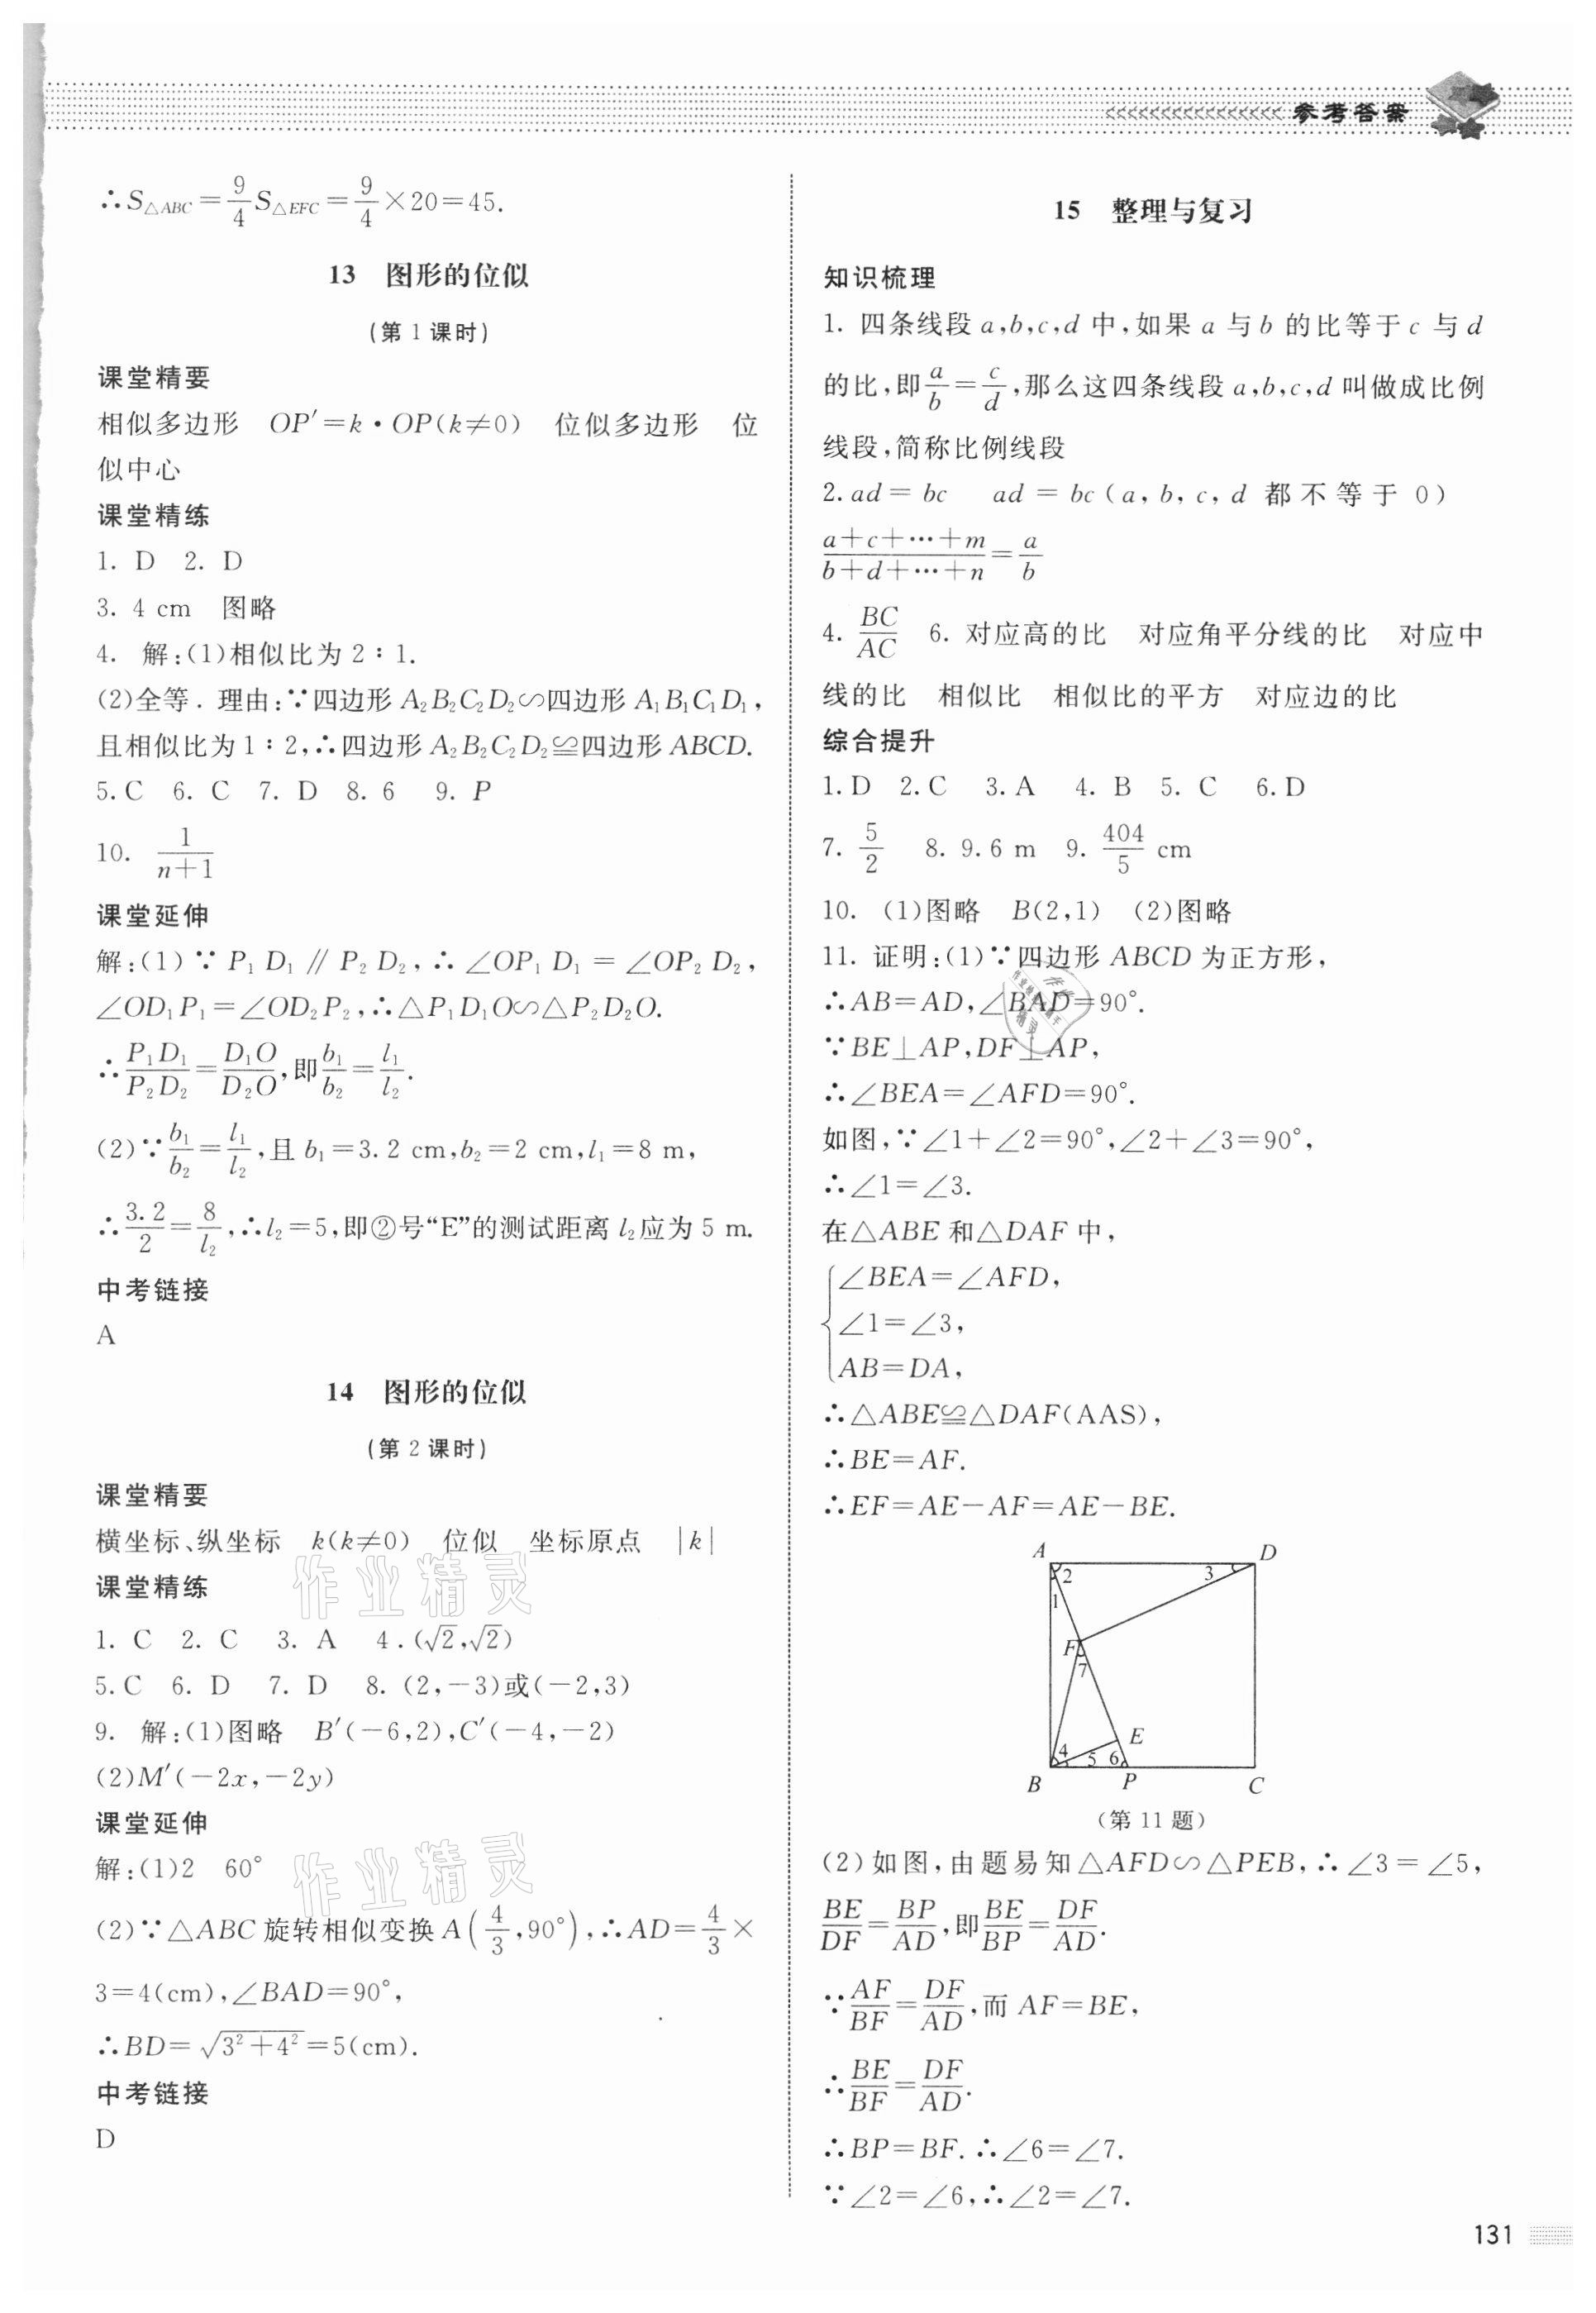 参考答案
∴S△ABC=9/4S△EFC=9/4×20=45.
13 图形的位似
(第1课时)
课堂精要
相似多边形 OP′=k·OP(k≠0) 位似多边形 位
似中心
课堂精练
1. D 2. D
3. 4 cm 图略
4. 解:(1)相似比为2∶1.
(2)全等. 理由:∵四边形A₂B₂C₂D₂∽四边形A₁B₁C₁D₁,
且相似比为1∶2,∴四边形A₂B₂C₂D₂≌四边形ABCD.
5.C 6. C 7. D 8. 6 9. P
10. 1/(n+1)
课堂延伸
解:(1)∵P₁D₁∥P₂D₂,∴∠OP₁D₁=∠OP₂D₂,
∠OD₁P₁=∠OD₂P₂,∴△P₁D₁O∽△P₂D₂O.
∴P₁D₁/P₂D₂=D₁O/D₂O,即b₁/b₂=l₁/l₂.
(2)∵b₁/b₂=l₁/l₂,且b₁=3.2 cm,b₂=2 cm,l₁=8 m,
∴3.2/2=8/l₂,∴l₂=5,即②号“E”的测试距离l₂应为5 m.
中考链接
A
14 图形的位似
(第2课时)
课堂精要
横坐标、纵坐标 k(k≠0) 位似 坐标原点 |k|
课堂精练
1. C 2. C 3. A 4.(√2,√2)
5.C 6. D 7. D 8. (2,-3)或(-2,3)
9. 解:(1)图略 B′(-6,2),C′(-4,-2)
(2)M′(-2x,-2y)
课堂延伸
解:(1)2 60°
(2)∵△ABC旋转相似变换A(4/3,90°),∴AD=4/3×
3=4(cm),∠BAD=90°,
∴BD=√(3²+4²)=5(cm).
中考链接
D
15 整理与复习
知识梳理
1. 四条线段a,b,c,d中,如果a与b的比等于c与d
的比,即a/b=c/d,那么这四条线段a,b,c,d叫做成比例
线段,简称比例线段
2.ad=bc ad=bc(a,b,c,d都不等于0)
(a+c+⋯+m)/(b+d+⋯+n)=a/b
4. BC/AC 6. 对应高的比 对应角平分线的比 对应中
线的比 相似比 相似比的平方 对应边的比
综合提升
1.D 2.C 3.A 4. B 5. C 6.D
7. 5/2 8. 9.6 m 9. 404/5 cm
10. (1)图略 B(2,1) (2)图略
11. 证明:(1)∵四边形ABCD为正方形,
∴AB=AD,∠BAD=90°.
∵BE⊥AP,DF⊥AP,
∴∠BEA=∠AFD=90°.
如图,∵∠1+∠2=90°,∠2+∠3=90°,
∴∠1=∠3.
在△ABE和△DAF中,
∠BEA=∠AFD,
∠1=∠3,
AB=DA,
∴△ABE≌△DAF(AAS),
∴BE=AF.
∴EF=AE-AF=AE-BE.
A D
2 3
1
F
7
E
4 5 6
B P C
(第11题)
(2)如图,由题易知△AFD∽△PEB,∴∠3=∠5,
BE/DF=BP/AD,即BE/BP=DF/AD.
∵AF/BF=DF/AD,而AF=BE,
∴BE/BF=DF/AD.
∴BP=BF.∴∠6=∠7.
∵∠2=∠6,∴∠2=∠7.
131
作业精灵
作业精灵